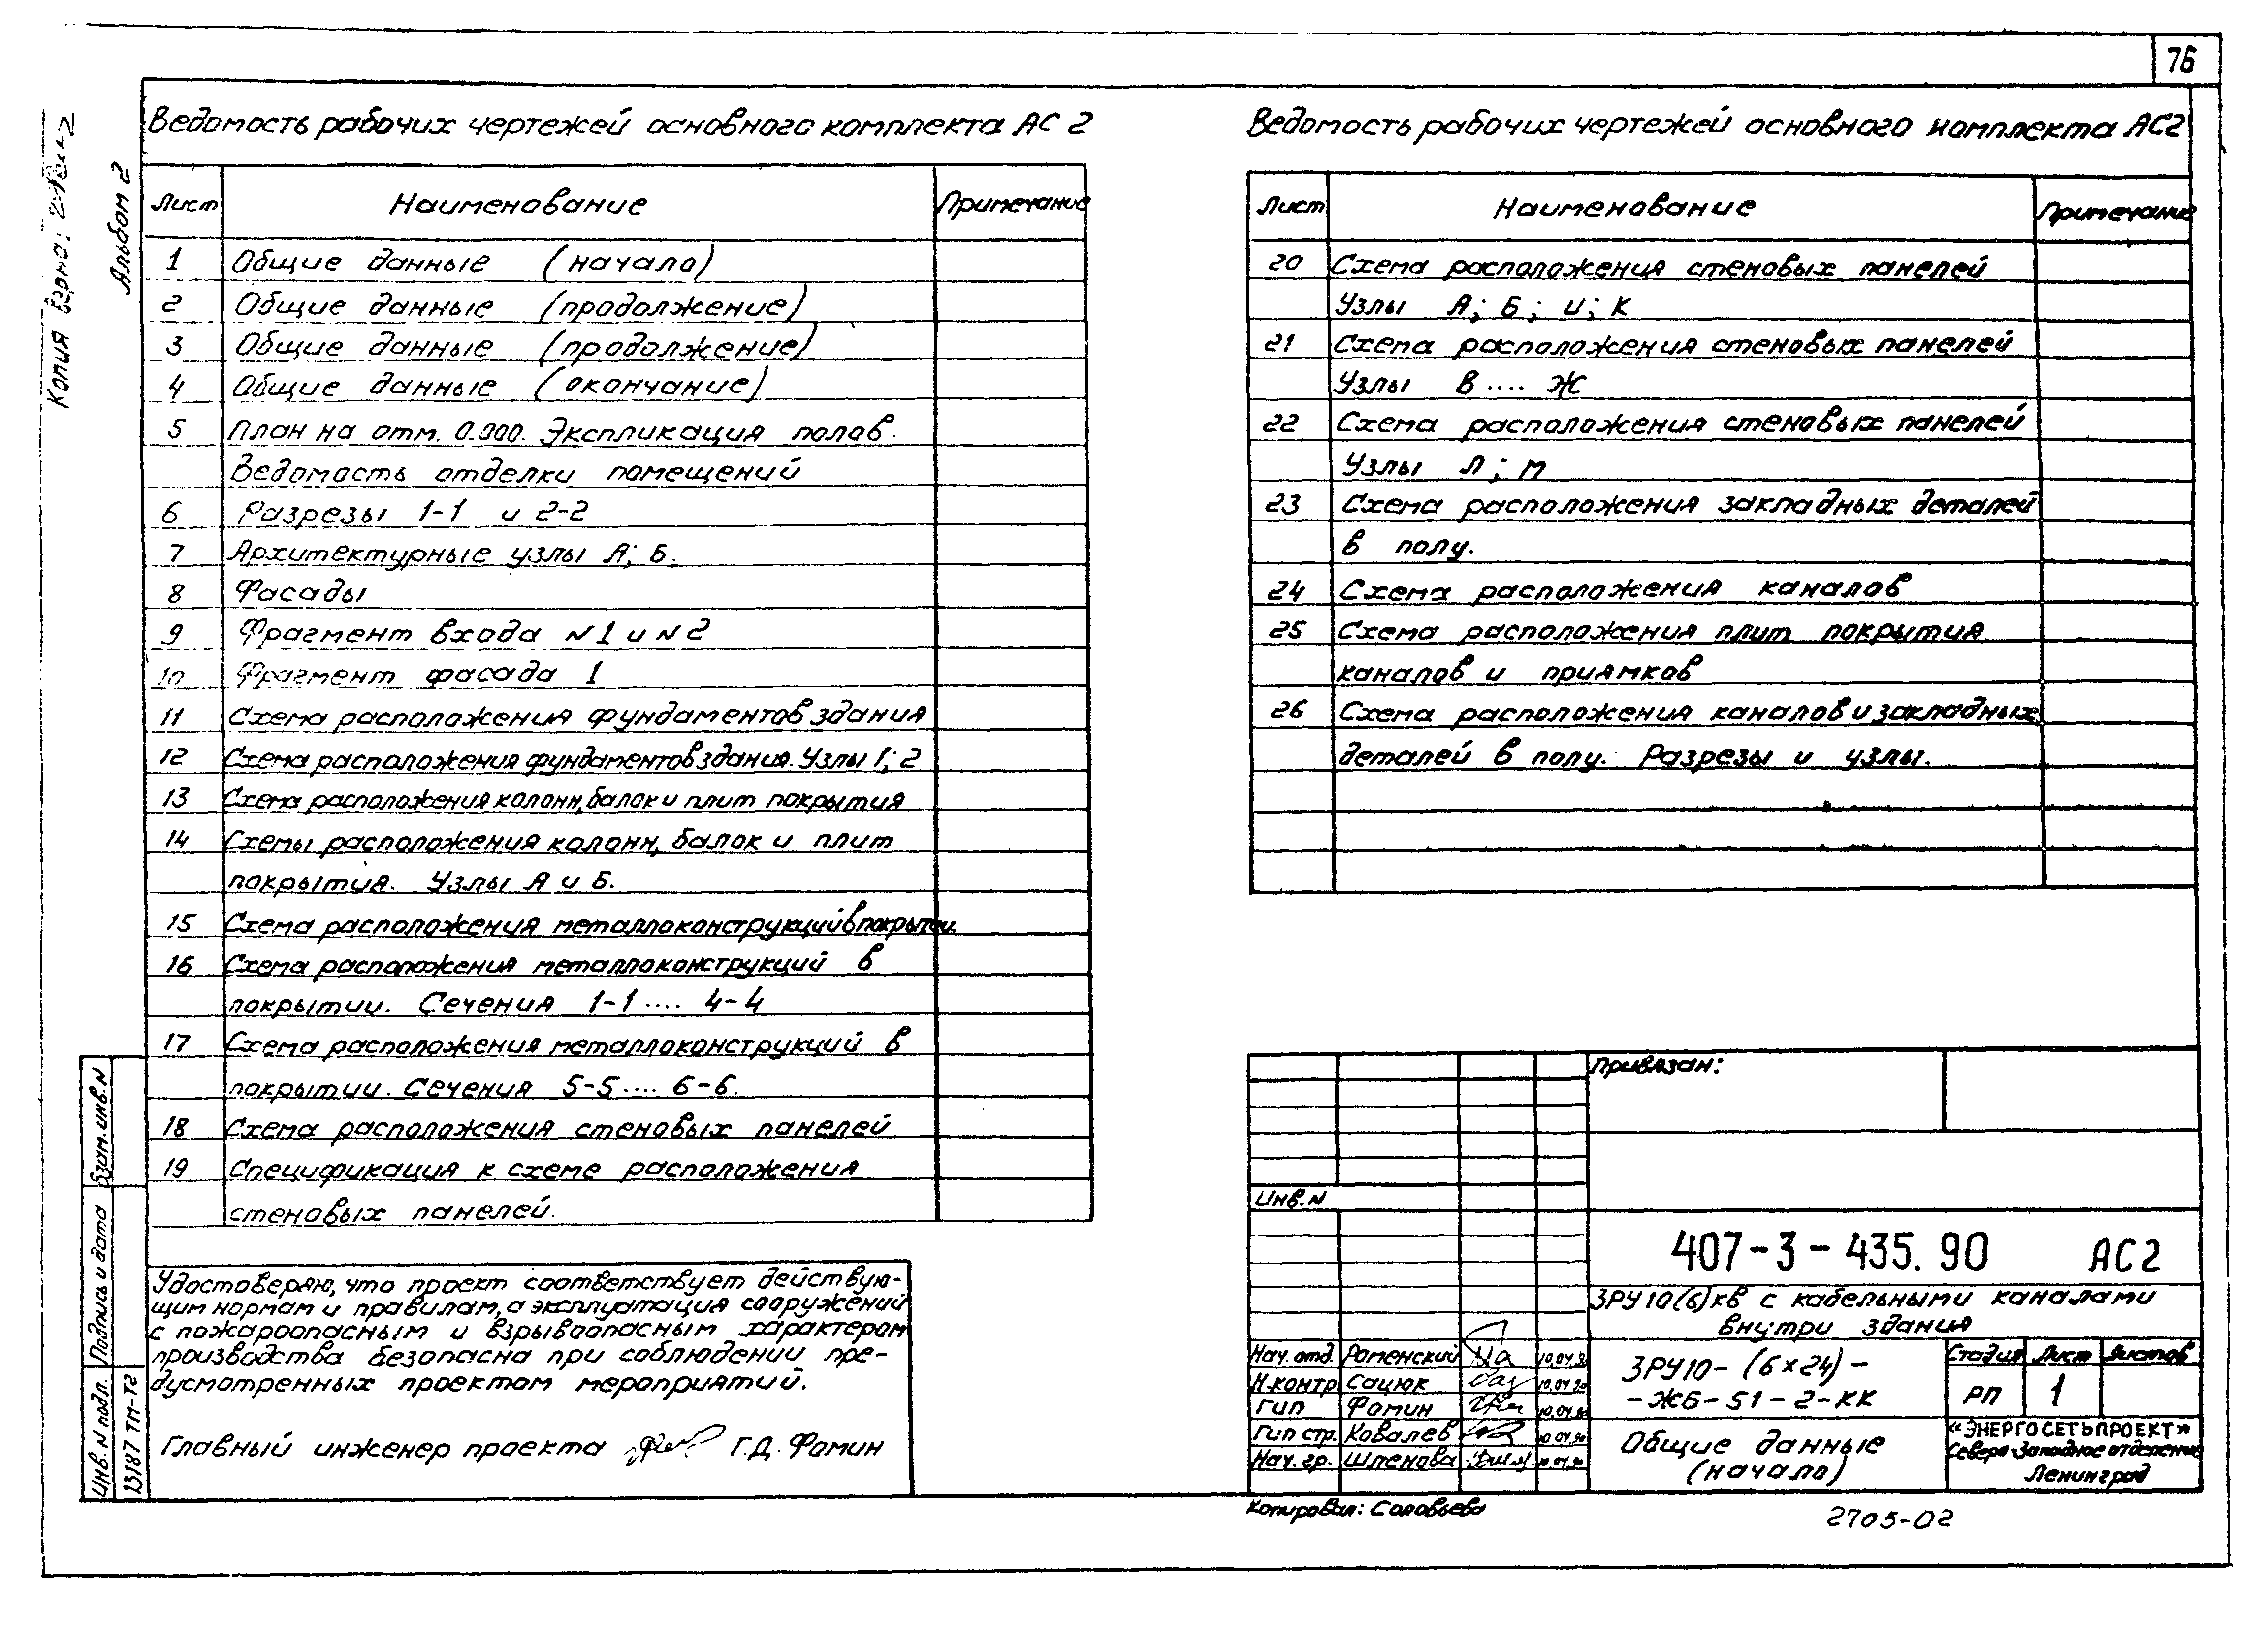 76
Копия верна:
Альбом 2
Ведомость рабочих чертежей основного комплекта АС 2
Лист Наименование Примечание
1 Общие данные (начало)
2 Общие данные (продолжение)
3 Общие данные (продолжение)
4 Общие данные (окончание)
5 План на отм. 0.000. Экспликация полов.
Ведомость отделки помещений
6 Разрезы 1-1 и 2-2
7 Архитектурные узлы А; Б.
8 Фасады
9 Фрагмент входа N1 и N2
10 Фрагмент фасада 1
11 Схема расположения фундаментов здания
12 Схема расположения фундаментов здания. Узлы 1; 2
13 Схема расположения колонн, балок и плит покрытия
14 Схемы расположения колонн, балок и плит
покрытия. Узлы А и Б.
15 Схема расположения металлоконструкций в покрытии.
16 Схема расположения металлоконструкций в
покрытии. Сечения 1-1 .... 4-4
17 Схема расположения металлоконструкций в
покрытии. Сечения 5-5 .... 6-6.
18 Схема расположения стеновых панелей
19 Спецификация к схеме расположения
стеновых панелей.
Удостоверяю, что проект соответствует действую-
щим нормам и правилам, а эксплуатация сооружений
с пожароопасным и взрывоопасным характером
производства безопасна при соблюдении пре-
дусмотренных проектом мероприятий.
Главный инженер проекта Г.Д. Фомин
Взам. инв. N
Подпись и дата
Инв. N подл.
13187 ТМ-Т2
Ведомость рабочих чертежей основного комплекта АС2
Лист Наименование Примечание
20 Схема расположения стеновых панелей
Узлы А; Б; И; К
21 Схема расположения стеновых панелей
Узлы В .... Ж
22 Схема расположения стеновых панелей
Узлы Л; М
23 Схема расположения закладных деталей
в полу.
24 Схема расположения каналов
25 Схема расположения плит покрытия
каналов и приямков
26 Схема расположения каналов и закладных
деталей в полу. Разрезы и узлы.
Привязан:
Инв. N
407-3-435.90 АС2
ЗРУ 10(6) кв с кабельными каналами
внутри здания
Нач. отд. Роменский 10.04.90
Н.контр Сацюк 10.04.90
Гип Фомин 10.04.90
Гип стр. Ковалев 10.04.90
Нач. гр. Шленова 10.04.90
ЗРУ10-(6×24)-
-ЖБ-51-2-КК
Стадия Лист Листов
РП 1
Общие данные
(начало)
«ЭНЕРГОСЕТЬПРОЕКТ»
Северо-Западное отделение
Ленинград
Копировал: Соловьева
2705-02